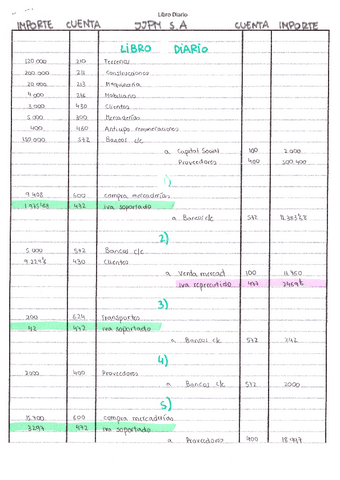 Libro Diario
IMPORTE CUENTA JJPM S.A CUENTA IMPORTE
LIBRO DIARIO
210 Terrenos
200 000 211 Construcciones
20 000 213 Maquinaria
4 000 216 Mobiliario
3 000 430 Clientes
5 000 300 Mercaderías
400 460 Anticipo remuneraciones
150 000 572 Bancos c/c
a Capital Social 100
Proveedores 400
1)
600 compra mercaderías
472 iva soportado
a Bancos c/c 572
2)
5 000 572 Bancos c/c
430 Clientes
a Venta mercad 100
iva repercutido 477
3)
200 624 Transportes
42 472 iva soportado
a Bancos c/c 572 242
4)
2000 400 Proveedores
a Bancos c/c 572 2000
5)
600 compra mercaderías
3297 472 iva soportado
a Proveedores 400